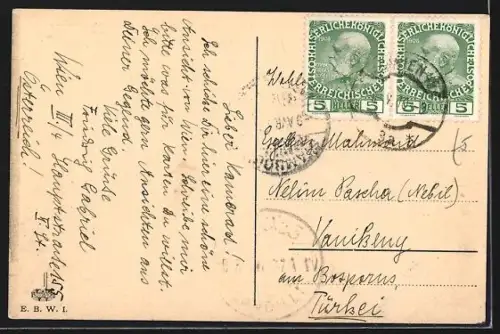 Lieber Kamerad!
Ich schicke Dir hier eine schöne
Ansicht von Wien. Schreibe mir
bitte was für Karten Du willst.
Ich möchte gern Ansichten aus
Deiner Gegend.
Viele Grüße
Ludwig Gabriel
Wien III/4 Hauptstraße
Österreich!
E. B. W. I.
KAISERLICHE KÖNIGLICHE
ÖSTERREICHISCHE POST
5 HELLER 5
KAISERLICHE KÖNIGLICHE
ÖSTERREICHISCHE POST
5 HELLER 5
Mahmoud
Nelim Pascha (Nebil)
am Bosporus
Türkei